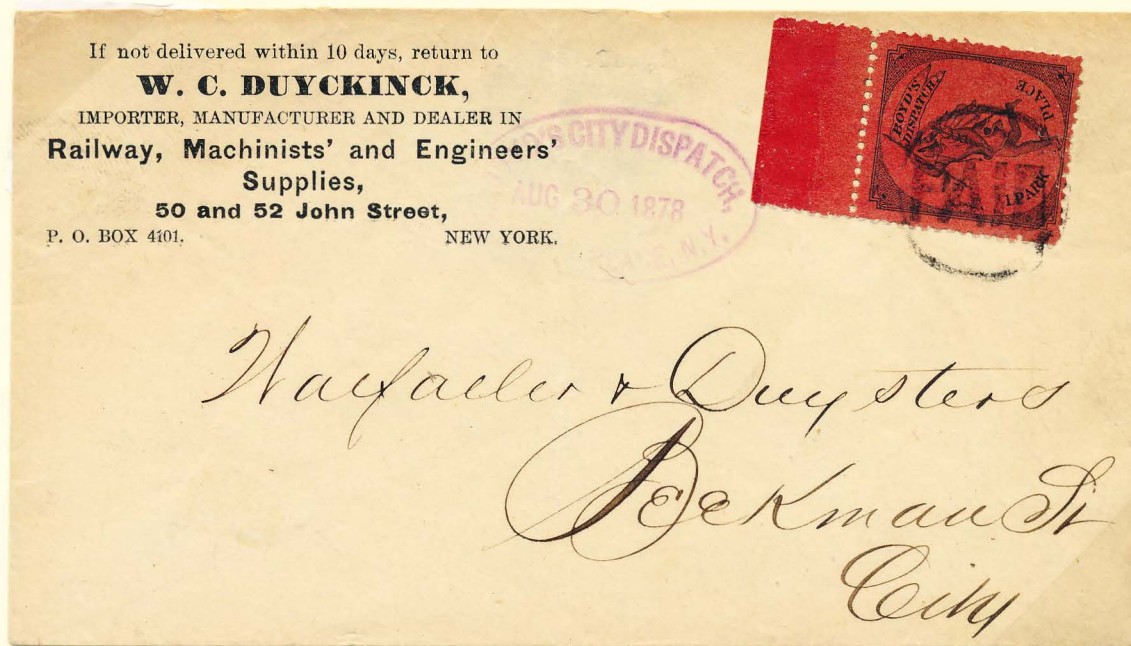 If not delivered within 10 days, return to
W. C. DUYCKINCK,
IMPORTER, MANUFACTURER AND DEALER IN
Railway, Machinists' and Engineers'
Supplies,
50 and 52 John Street,
P. O. BOX 4101. NEW YORK.
CITY DISPATCH,
AUG 30 1878
N.Y.
BOYD'S
DISPATCH.
PLACE
1 PARK
& Duysters
Beekman St
City